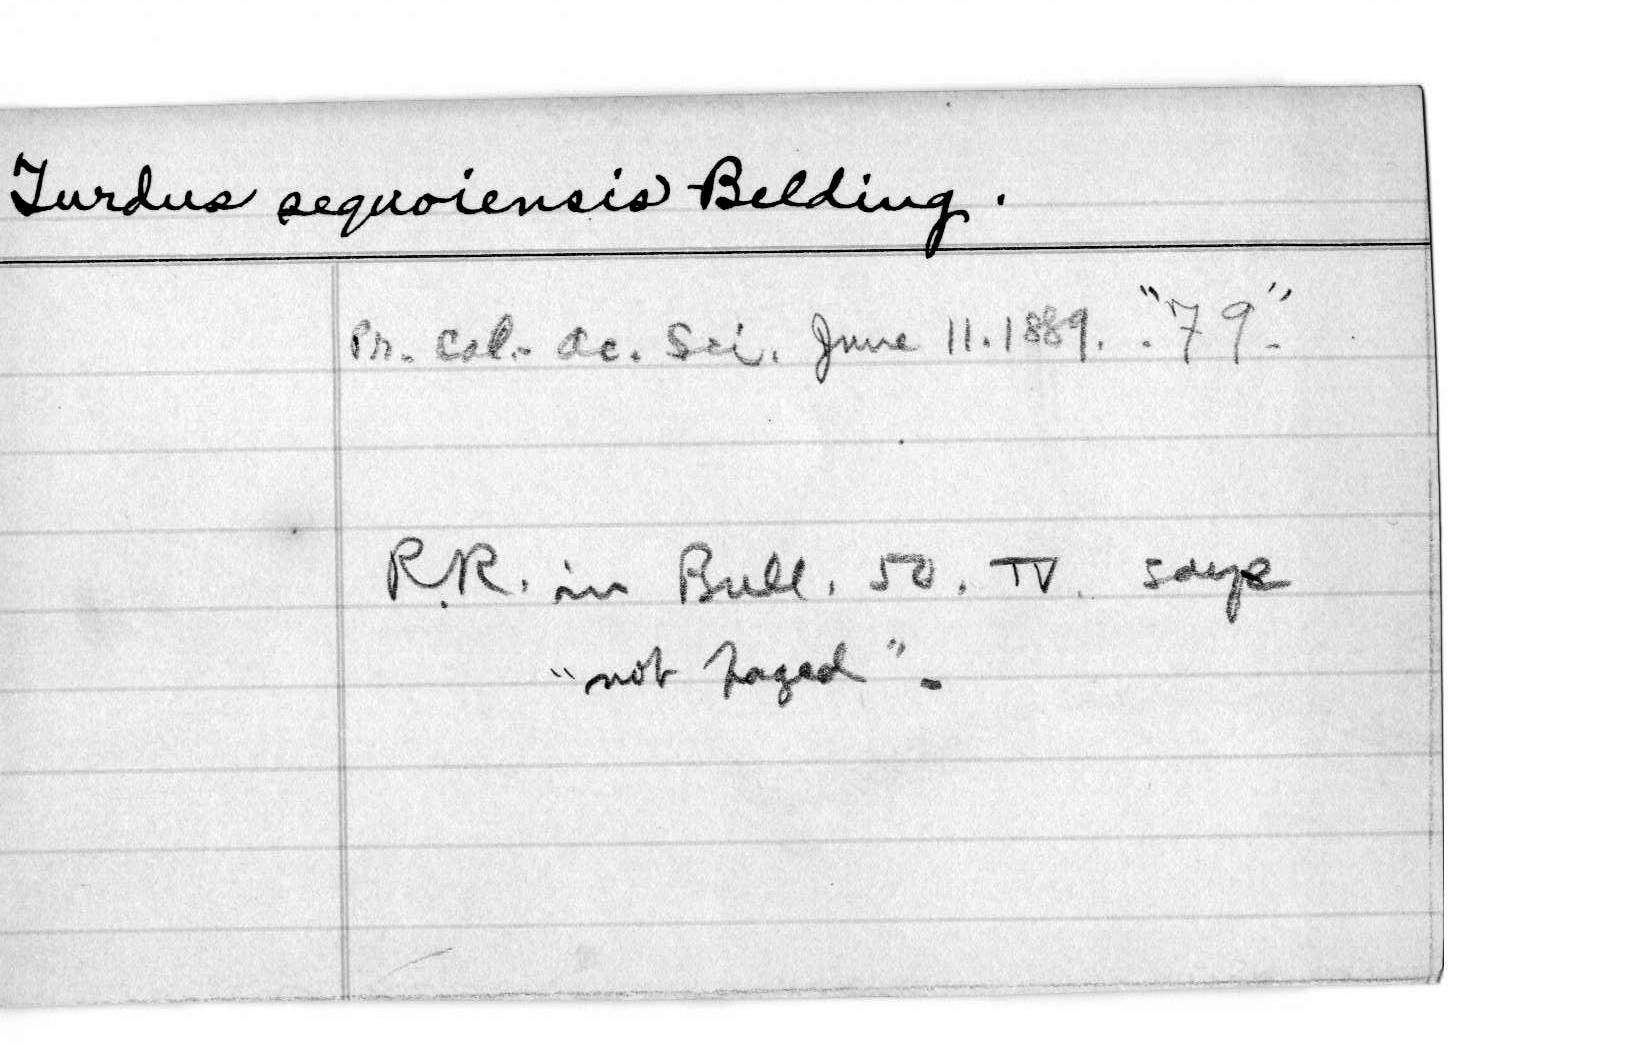 Turdus sequoiensis Belding.
Pr. Cal. Ac. Sci. June 11. 1889. "79"
R.R. in Bull. 50. IV. says
"not paged".